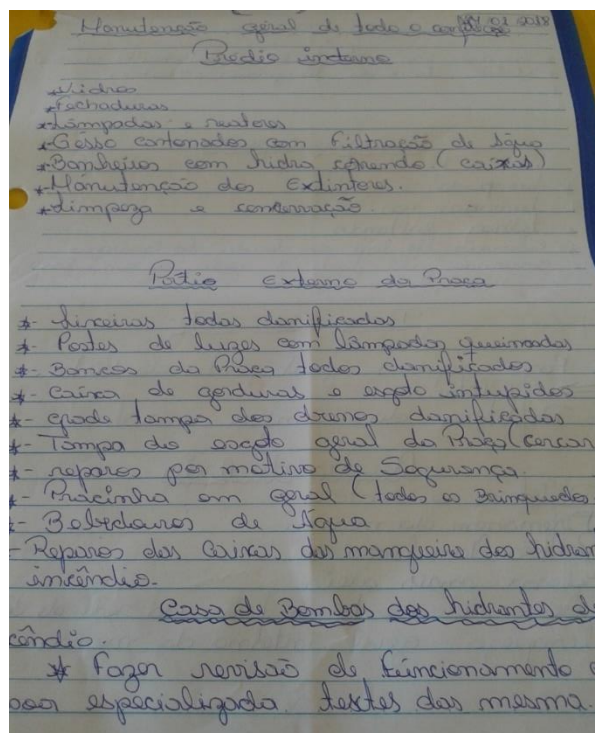 Manutenção geral de todo o 01 2018
Predio interno
*Vidros
*Fechaduras
*Lâmpadas e reatores
*Gesso cartonados com filtração de água
*Banheiros com hidra correndo (caixas)
*Manutenção dos Extintores.
*Limpeza e conservação.
Pátio Externo da Praça
*- lixeiras todas danificadas
*- Postes de luzes com lâmpadas queimadas
*- Bancos da Praça todos danificados
*- Caixa de gorduras e esgoto intupidos
*- grade tampa dos drenos danificadas
*- Tampa do esgoto geral da Praça (cercar
*- reparos por motivo de Segurança.
*- Pracinha em geral (todos os Brinquedos
*- Bebedouros de Água
- Reparos das Caixas das mangueira dos hidran
incêndio.
Casa de Bombas dos hidrantes de
cêndio.
* Fazer revisão de funcionamento
especializada. testes das mesma.